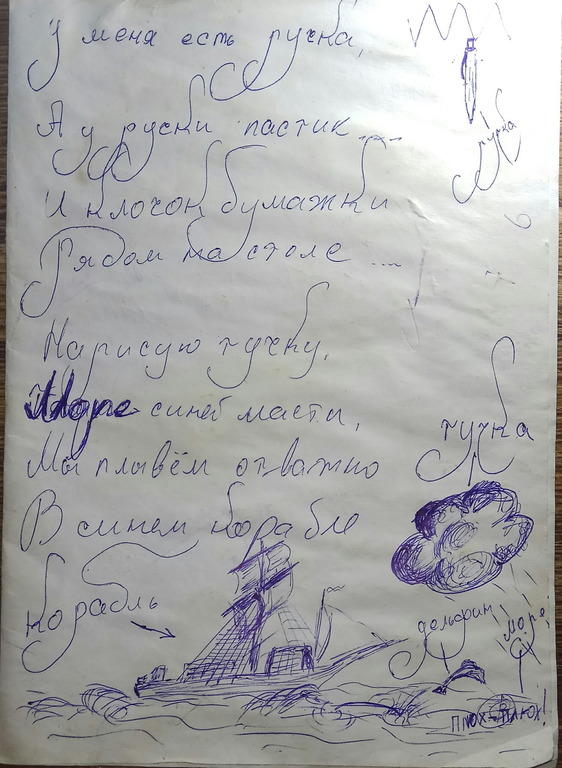 У меня есть ручка,
ручка
А у ручки пастик...
И клочок бумажки
Рядом на столе ...
Нарисую тучку,
Море синей масти,
тучка
Мы плывём отважно
В синем корабле
корабль
дельфин
море
ПЛЮХ-ПЛЮХ!